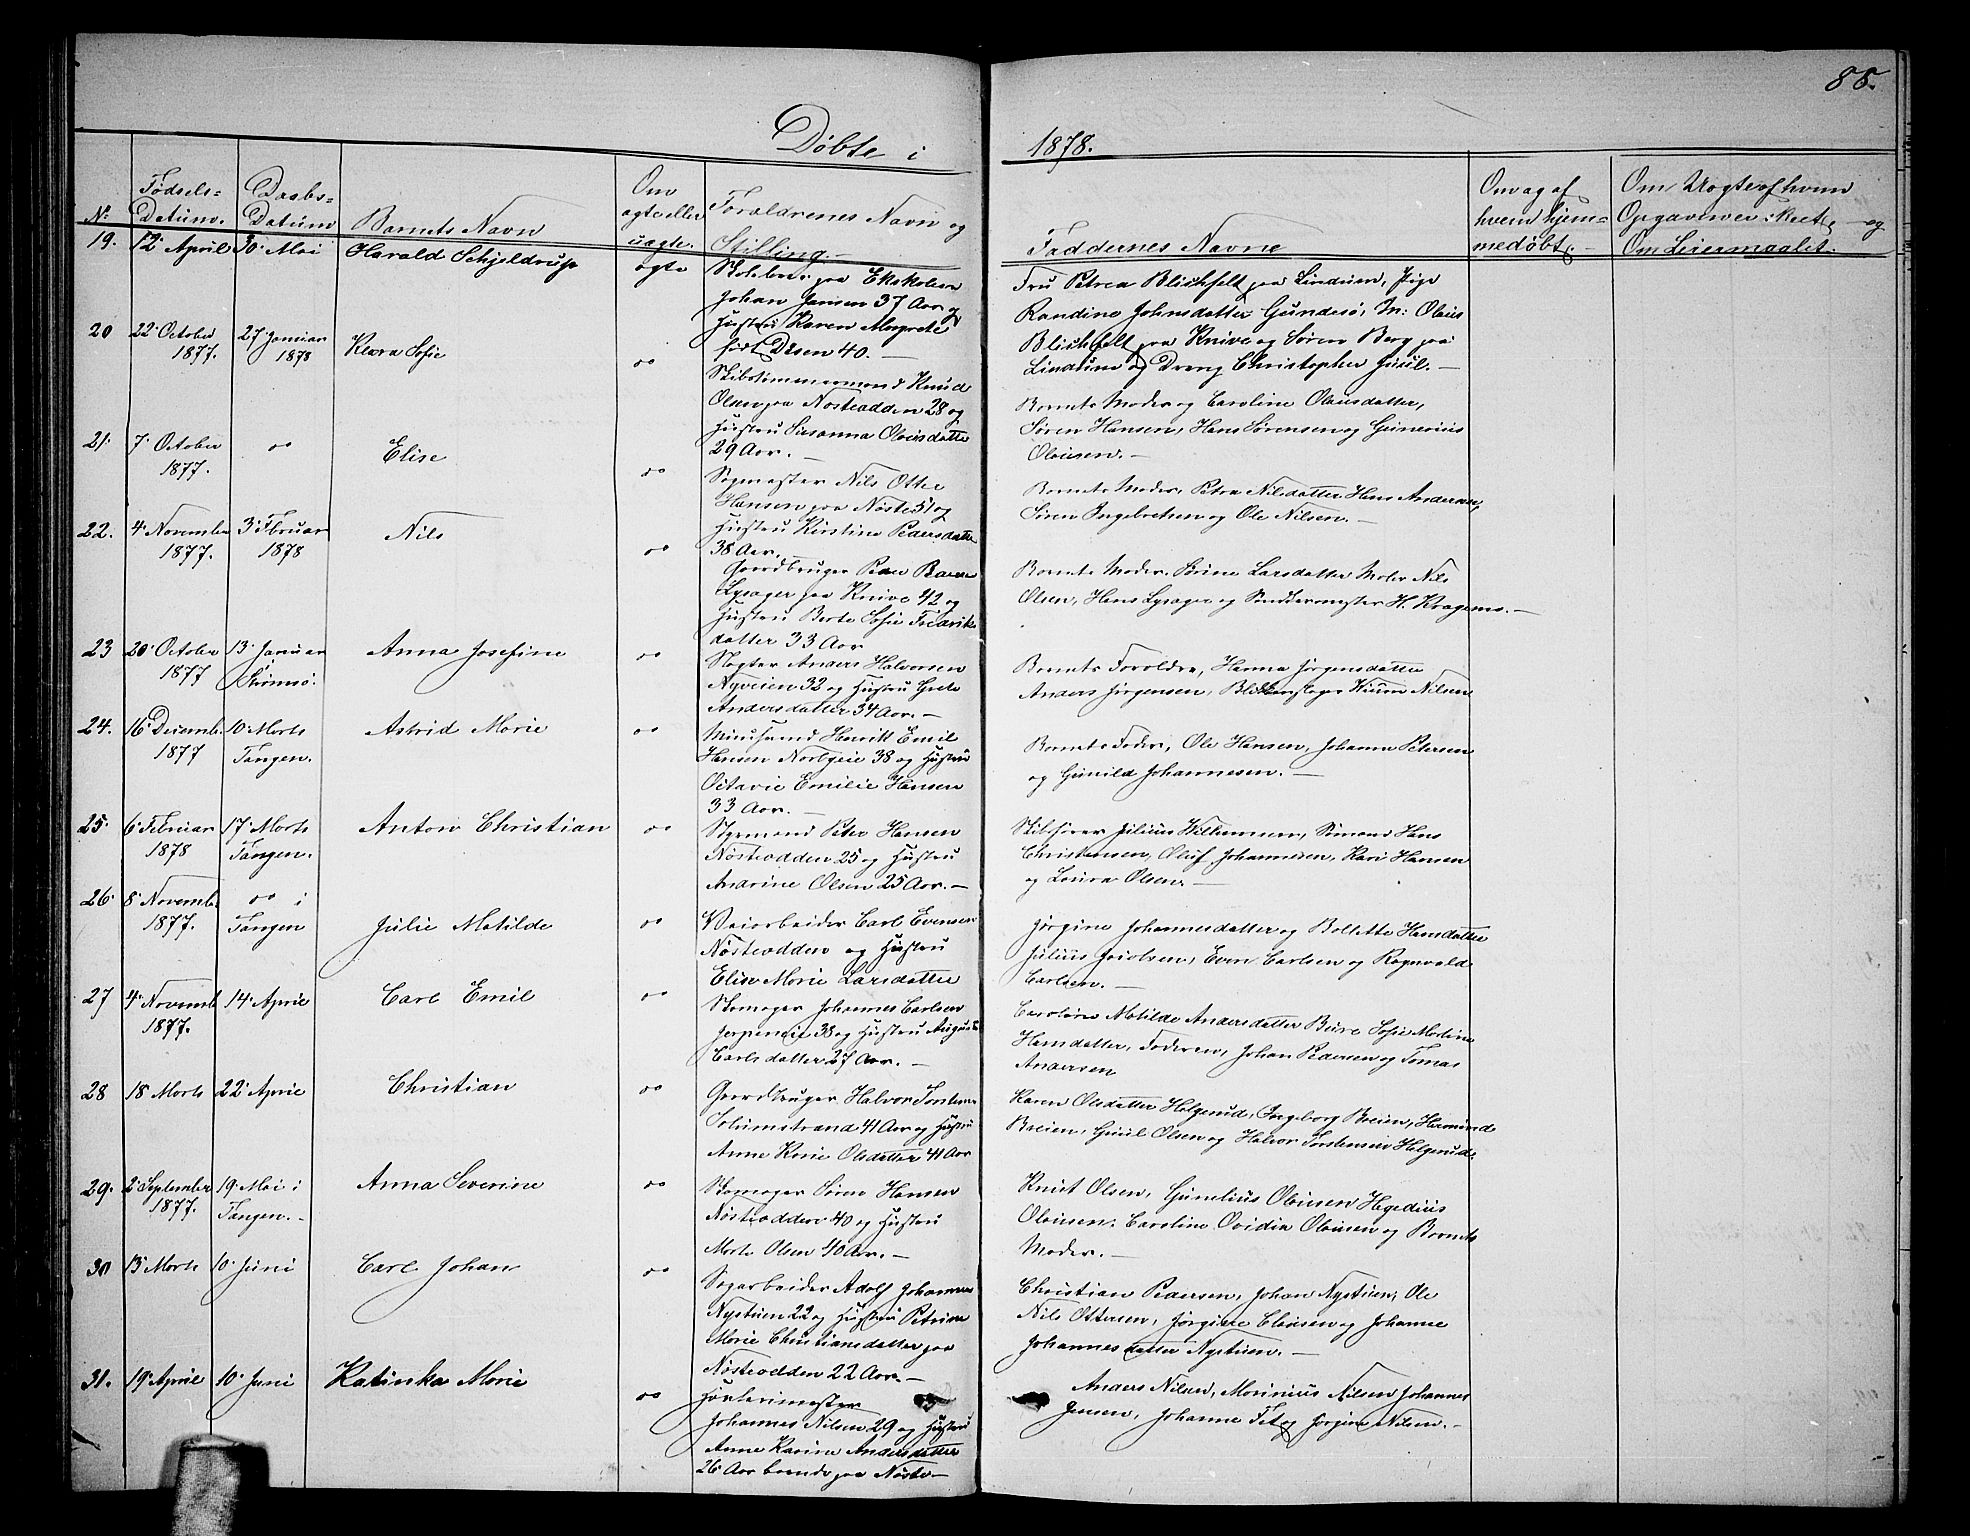 85.
Døbte i 1878.
No
Fødsels-
Datum.
Daabs-
Datum
Barnets Navn
Om
ægte eller
uægte.
Forældrenes Navn og
Stilling.
Faddernes Navne
Om og af
hvem hjem-
medøbt.
Om Uægte af hvem
Opgaven er skeet og
Om Leiermaalet.
19. 12 April 30 Mai Harald Schjeldrup ægte
Johan Jansen 37 Aar og
Hustru Karen Margrete
født Olsen 40. —
Fru Petrea Blichfelt paa Lindum, Pige
Randine Johnsdatter Gundesø, M: Olaus
Blichfelt paa Knive og Søren Berg paa
Lindum og Dreng Christopher Juul. —
20 22 October 27 Januar
1877. 1878
Klara Sofie "
Skibstømmermand Knud
Olsen paa Nøsteodden 28 og
Hustru Susanna Olausdatter
29 Aar. —
Barnets Moder og Caroline Olausdatter,
Søren Hansen, Hans Sørensen og Gunerius
Olausen. —
21. 7 October "
1877.
Elise "
Sagmester Nils Otter
Hansen paa Nøste 51 og
Hustru Kirstine Pedersdatter
38 Aar.
Barnets Moder, Petra Nilsdatter Hans Andersen,
Søren Ingebretsen og Ole Nilsen. —
22. 4 November 3 Februar
1877. 1878
Nils "
Gaardbruger
Lysager paa Knive 42 og
Hustru Berte Sofie Fredriks
datter 33 Aar
Barnets Moder. Sørine Larsdatter Maler Nils
Olsen, Hans Lysager og
23 20 October 13 Januar
1877 Strømsø.
Anna Josefine "
Slagter Anders Halvorsen
Nyveien 32 og Hustru Grete
Andersdatter 34 Aar. —
Barnets Forældre, Hanna Jørgensdatter
Anders Jørgensen, Nilsen
24. 16 Decemb. 10 Marts
1877 Tangen.
Astrid Marie "
Henrik Emil
Hansen 38 og Hustru
Octavie Emilie Hansen
33 Aar. —
Barnets Fader, Ole Hansen, Johanne Petersen
og Gunild Johannesen. —
25. 6 Februar 17 Marts
1878 Tangen.
Anton Christian "
Styrmand Peter Hansen
Nøsteodden 25 og Hustru
Anarine Olsen 25 Aar. —
Skibsfører Julius Sømand Hans
Christensen, Oluf Johannesen, Kari Hansen
og Laura Olsen. —
26 8 Novemb. " i
1877. Tangen
Julie Matilde "
Veiarbeider Carl Evensen
Nøsteodden og Hustru
Elise Marie Larsdatter
Jørgine Johannesdatter og Bolette Hansdatter
Julius Jacobsen, Even Carlsen og Ragnvald
Carlsen. —
27 4 Novemb. 14 April
1877.
Carl Emil "
Skomager Johannes Carlsen
38 og Hustru Augusta
Carlsdatter 27 Aar. —
Caroline Matilde Andersdatter Sofie Martine
Hansdatter, Faderen, Johan Pedersen og Tomas
Andersen
28 18 Marts 22 April Christian "
Gaardbruger Halvor Torstensen
Solumstrand 41 Aar og Hustru
Anne Karie Olsdatter 41 Aar
Karen Olsdatter Helgerud, Ingeborg Breien,
Breien, Gunil Olsen og Halvor Torstensen Helgerud.
29. 2 September 19 Mai i
1877. Tangen. —
Anna Severine "
Skomager Søren Hansen
Nøsteodden 40 og Hustru
Marte Olsen 40 Aar. —
Knut Olsen, Gunelius Olausen
Olausen. Caroline Ovidia Olausen og Barnets
Moder. —
30 13 Marts 10 Juni Carl Johan "
Sagarbeider Adolf Johannes
Nystuen 22 og Hustru Petrine
Marie Christiansdatter paa
Nøsteodden 22 Aar. —
Christian Pedersen, Johan Nystuen, Ole
Nils Ottersen, Jørgine og Johanne
Johannesdatter Nystuen. —
31. 19 April 10 Juni Katinka Marie "
Johannes Nilsen 29 og Hustru
Anne Karine Andersdatter
26 Aar boende paa Nøste —
Anders Nilsen, Marinius Nilsen Johannes
Jensen, Johanne og Jørgine Nilsen. —